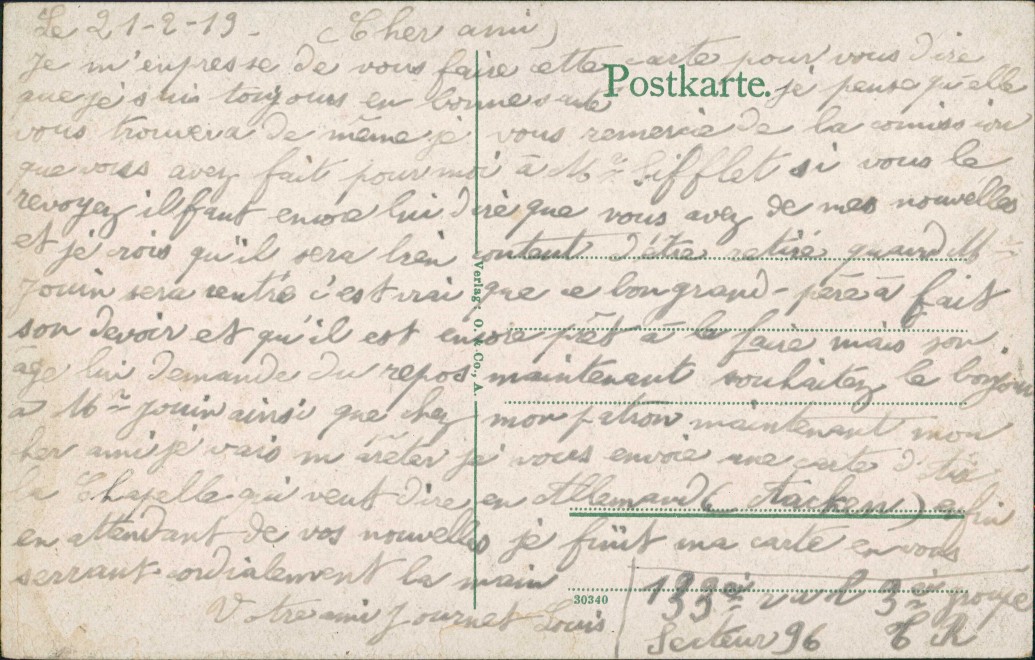 Le 21-2-19. (Cher ami)
Je m'enpresse de vous faire cette carte pour vous dire
Postkarte.
que je suis toujours en bonne santé je pense qu'elle
vous trouvera de même je vous remercie de la comission
que vous avez fait pour moi à Mr Sifflet si vous le
revoyez il faut encore lui dire que vous avez de mes nouvelles
et je crois qu'il sera bien content d'être retiré quand Mr
Jouin sera rentré c'est vrai que ce bon grand-père à fait
son devoir et qu'il est encore prêt à le faire mais son
âge lui demande du repos maintenant souhaitez le bonjour
a Mr Jouin ainsi que chez mon patron maintenant mon
cher ami je vais m'arêter je vous envoie une carte d'Aix
la Chapelle qui veut dire en Allemand (Aachen) enfin
en attendant de vos nouvelles je finit ma carte en vous
serrant cordialement la main
Votre ami Journet Louis
133 3è groupe
Secteur 96
Verlag: O. &Co., A.
30340